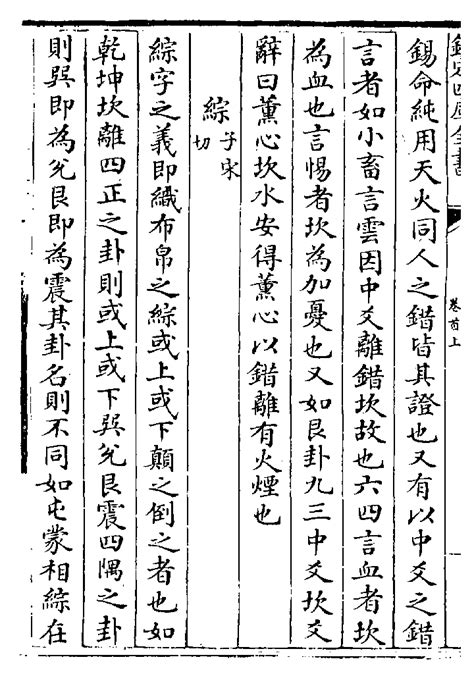 欽定四庫全書
卷首上
錫命純用天火同人之錯皆其證也又有以中爻之錯
言者如小畜言雲因中爻離錯坎故也六四言血者坎
為血也言惕者坎為加憂也又如艮卦九三中爻坎爻
辭曰薰心坎水安得薰心以錯離有火煙也
綜子宋切
綜字之義即織布帛之綜或上或下顛之倒之者也如
乾坤坎離四正之卦則或上或下巽兌艮震四隅之卦
則巽即為兌艮即為震其卦名則不同如屯蒙相綜在